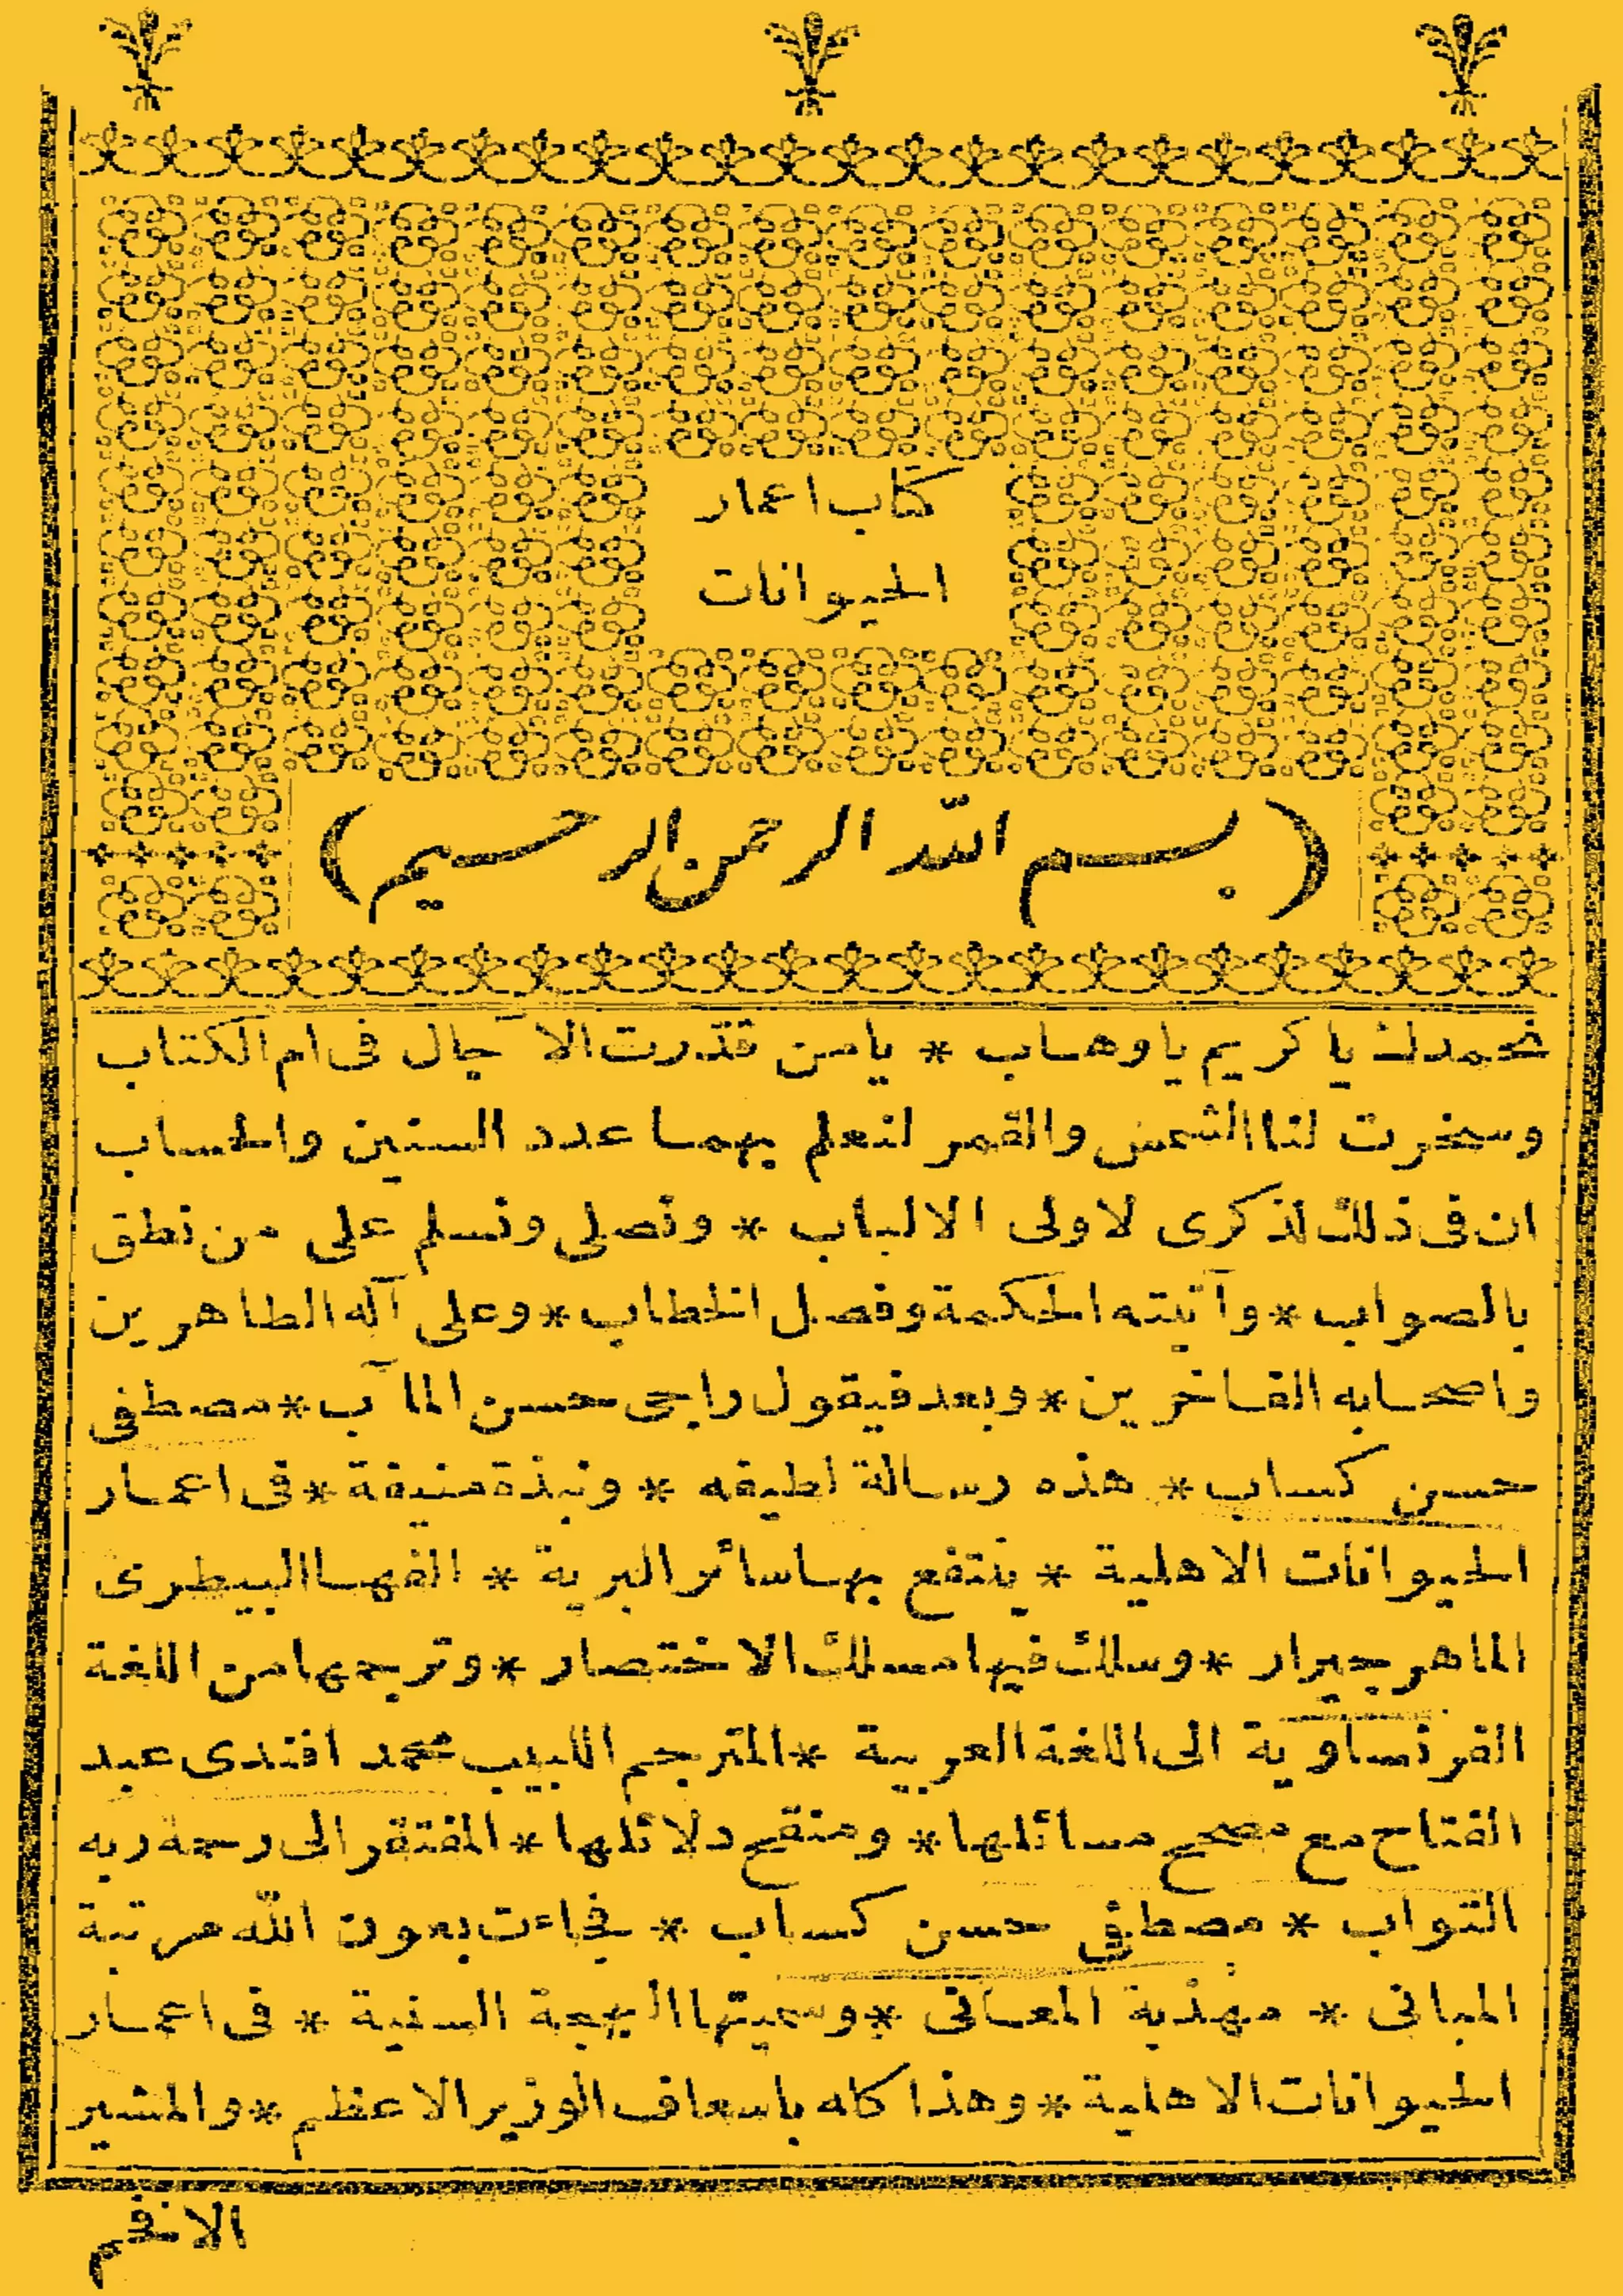 كتاب اعمار
الحيوانات
(بسم الله الرحمن الرحيم)
نحمدك يا كريم يا وهاب * يا من قدرت الآجال فى ام الكتاب
وسخرت لنا الشمس والقمر لنعلم بهما عدد السنين والحساب
ان فى ذلك لذكرى لاولى الالباب * ونصلى ونسلم على من نطق
بالصواب * وآتيته الحكمة وفصل الخطاب * وعلى آله الطاهرين
واصحابه الفاخرين * وبعد فيقول راجى حسن المآب * مصطفى
حسن كساب * هذه رسالة لطيفه * ونبذة منيفة * فى اعمار
الحيوانات الاهلية * ينتفع بها سائر البرية * الفها البيطرى
الماهر جيرار * وسلك فيها مسلك الاختصار * وترجمها من اللغة
الفرنساوية الى اللغة العربية * المترجم اللبيب محمد افندى عبد
الفتاح مع مصحح مسائلها * ومنقح دلائلها * المفتقر الى رحمة ربه
التواب * مصطفى حسن كساب * فجاءت بعون الله مرتبة
المبانى * مهذبة المعانى * وسميتها البهجة السنية * فى اعمار
الحيوانات الاهلية * وهذا كله باسعاف الوزير الاعظم * والمشير
الافخم